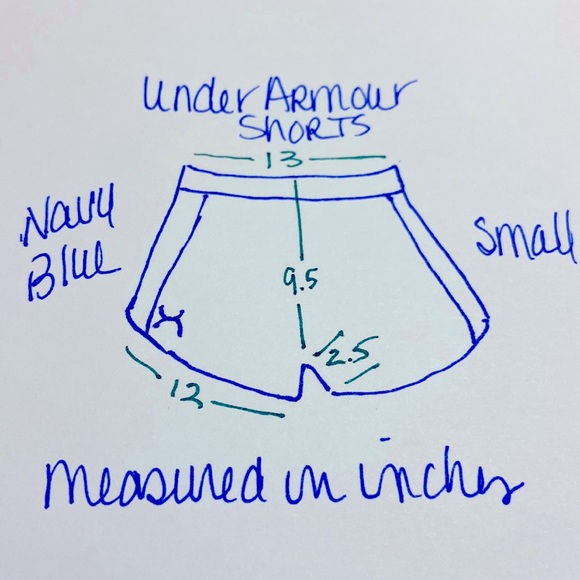 Under Armour
SHORTS
13
Navy
Blue
Small
9.5
2.5
12
measured in inches